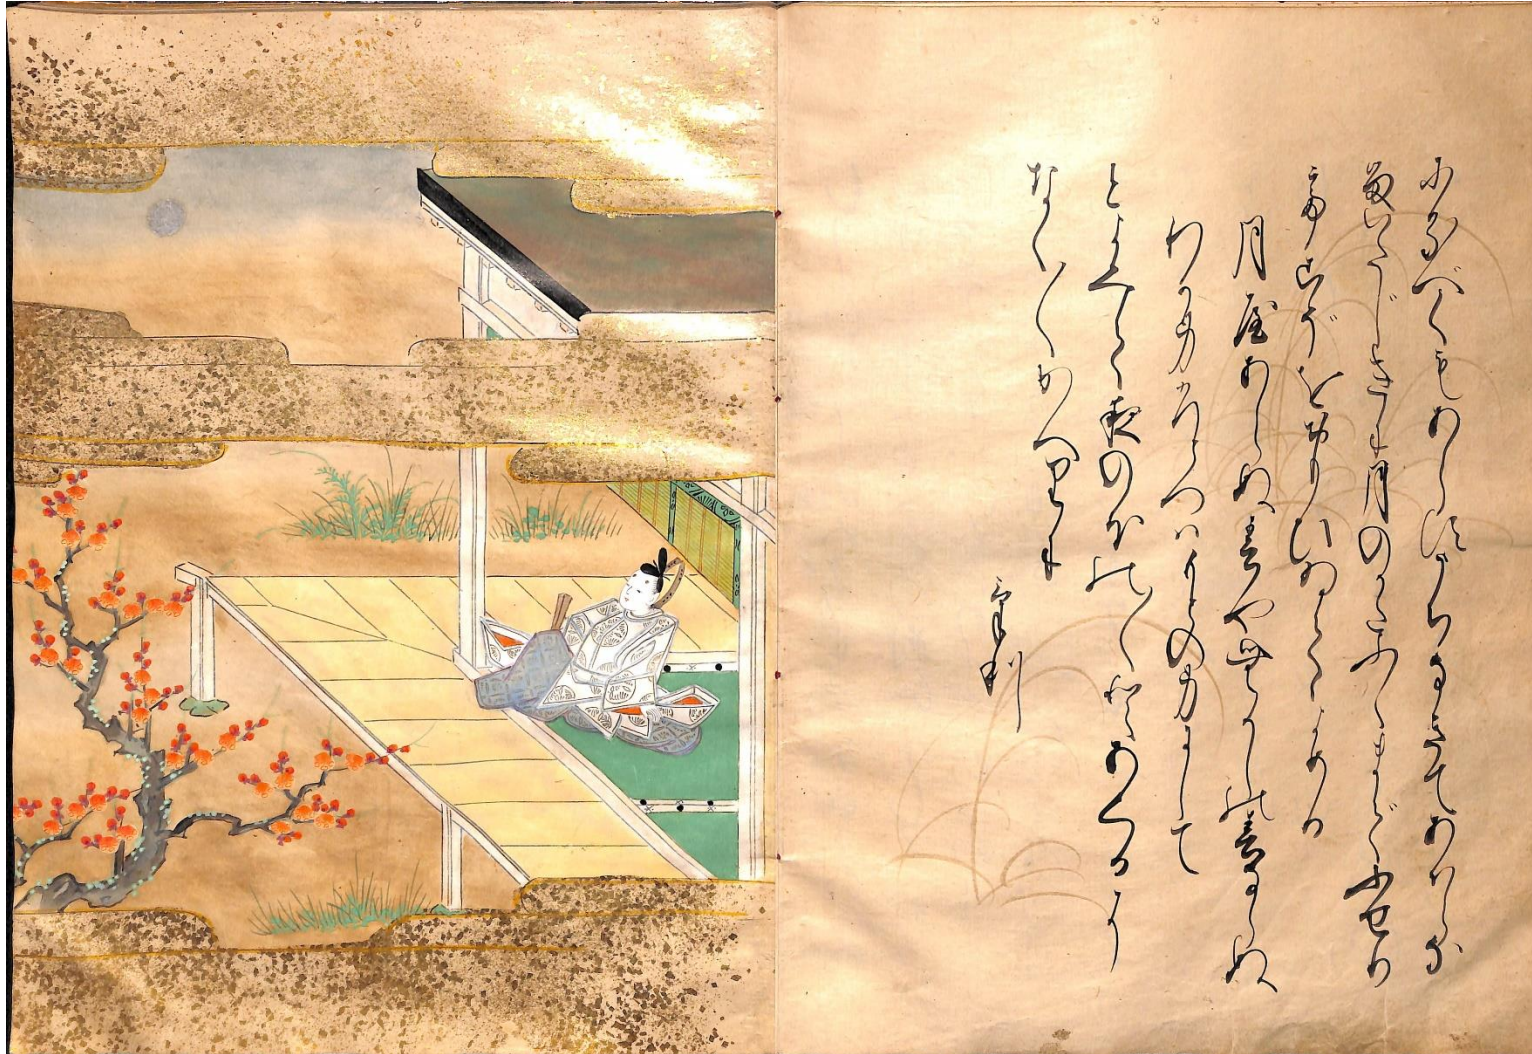 にるべくもあらずうちなきてあはらな
るいたじきに月のかたふくまでふせり
てこぞをおもひいでてよめる
月やあらぬ春やむかしの春ならぬ
わか身ひとつはもとの身にして
とよみて夜のほの〱とあくるに
なく〱かへりに
けり